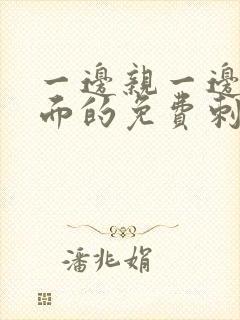 一邊親一邊
而的免費刺
潘兆娟